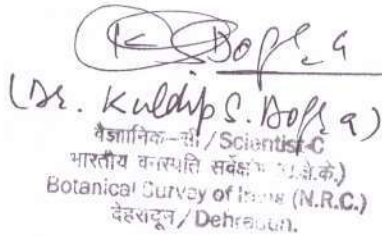 K Dogra
(Dr. Kuldip S. Dogra)
वैज्ञानिक-सी / Scientist-C
भारतीय वनस्पति सर्वेक्षण
Botanical Survey of India (N.R.C.)
देहरादून / Dehradun.